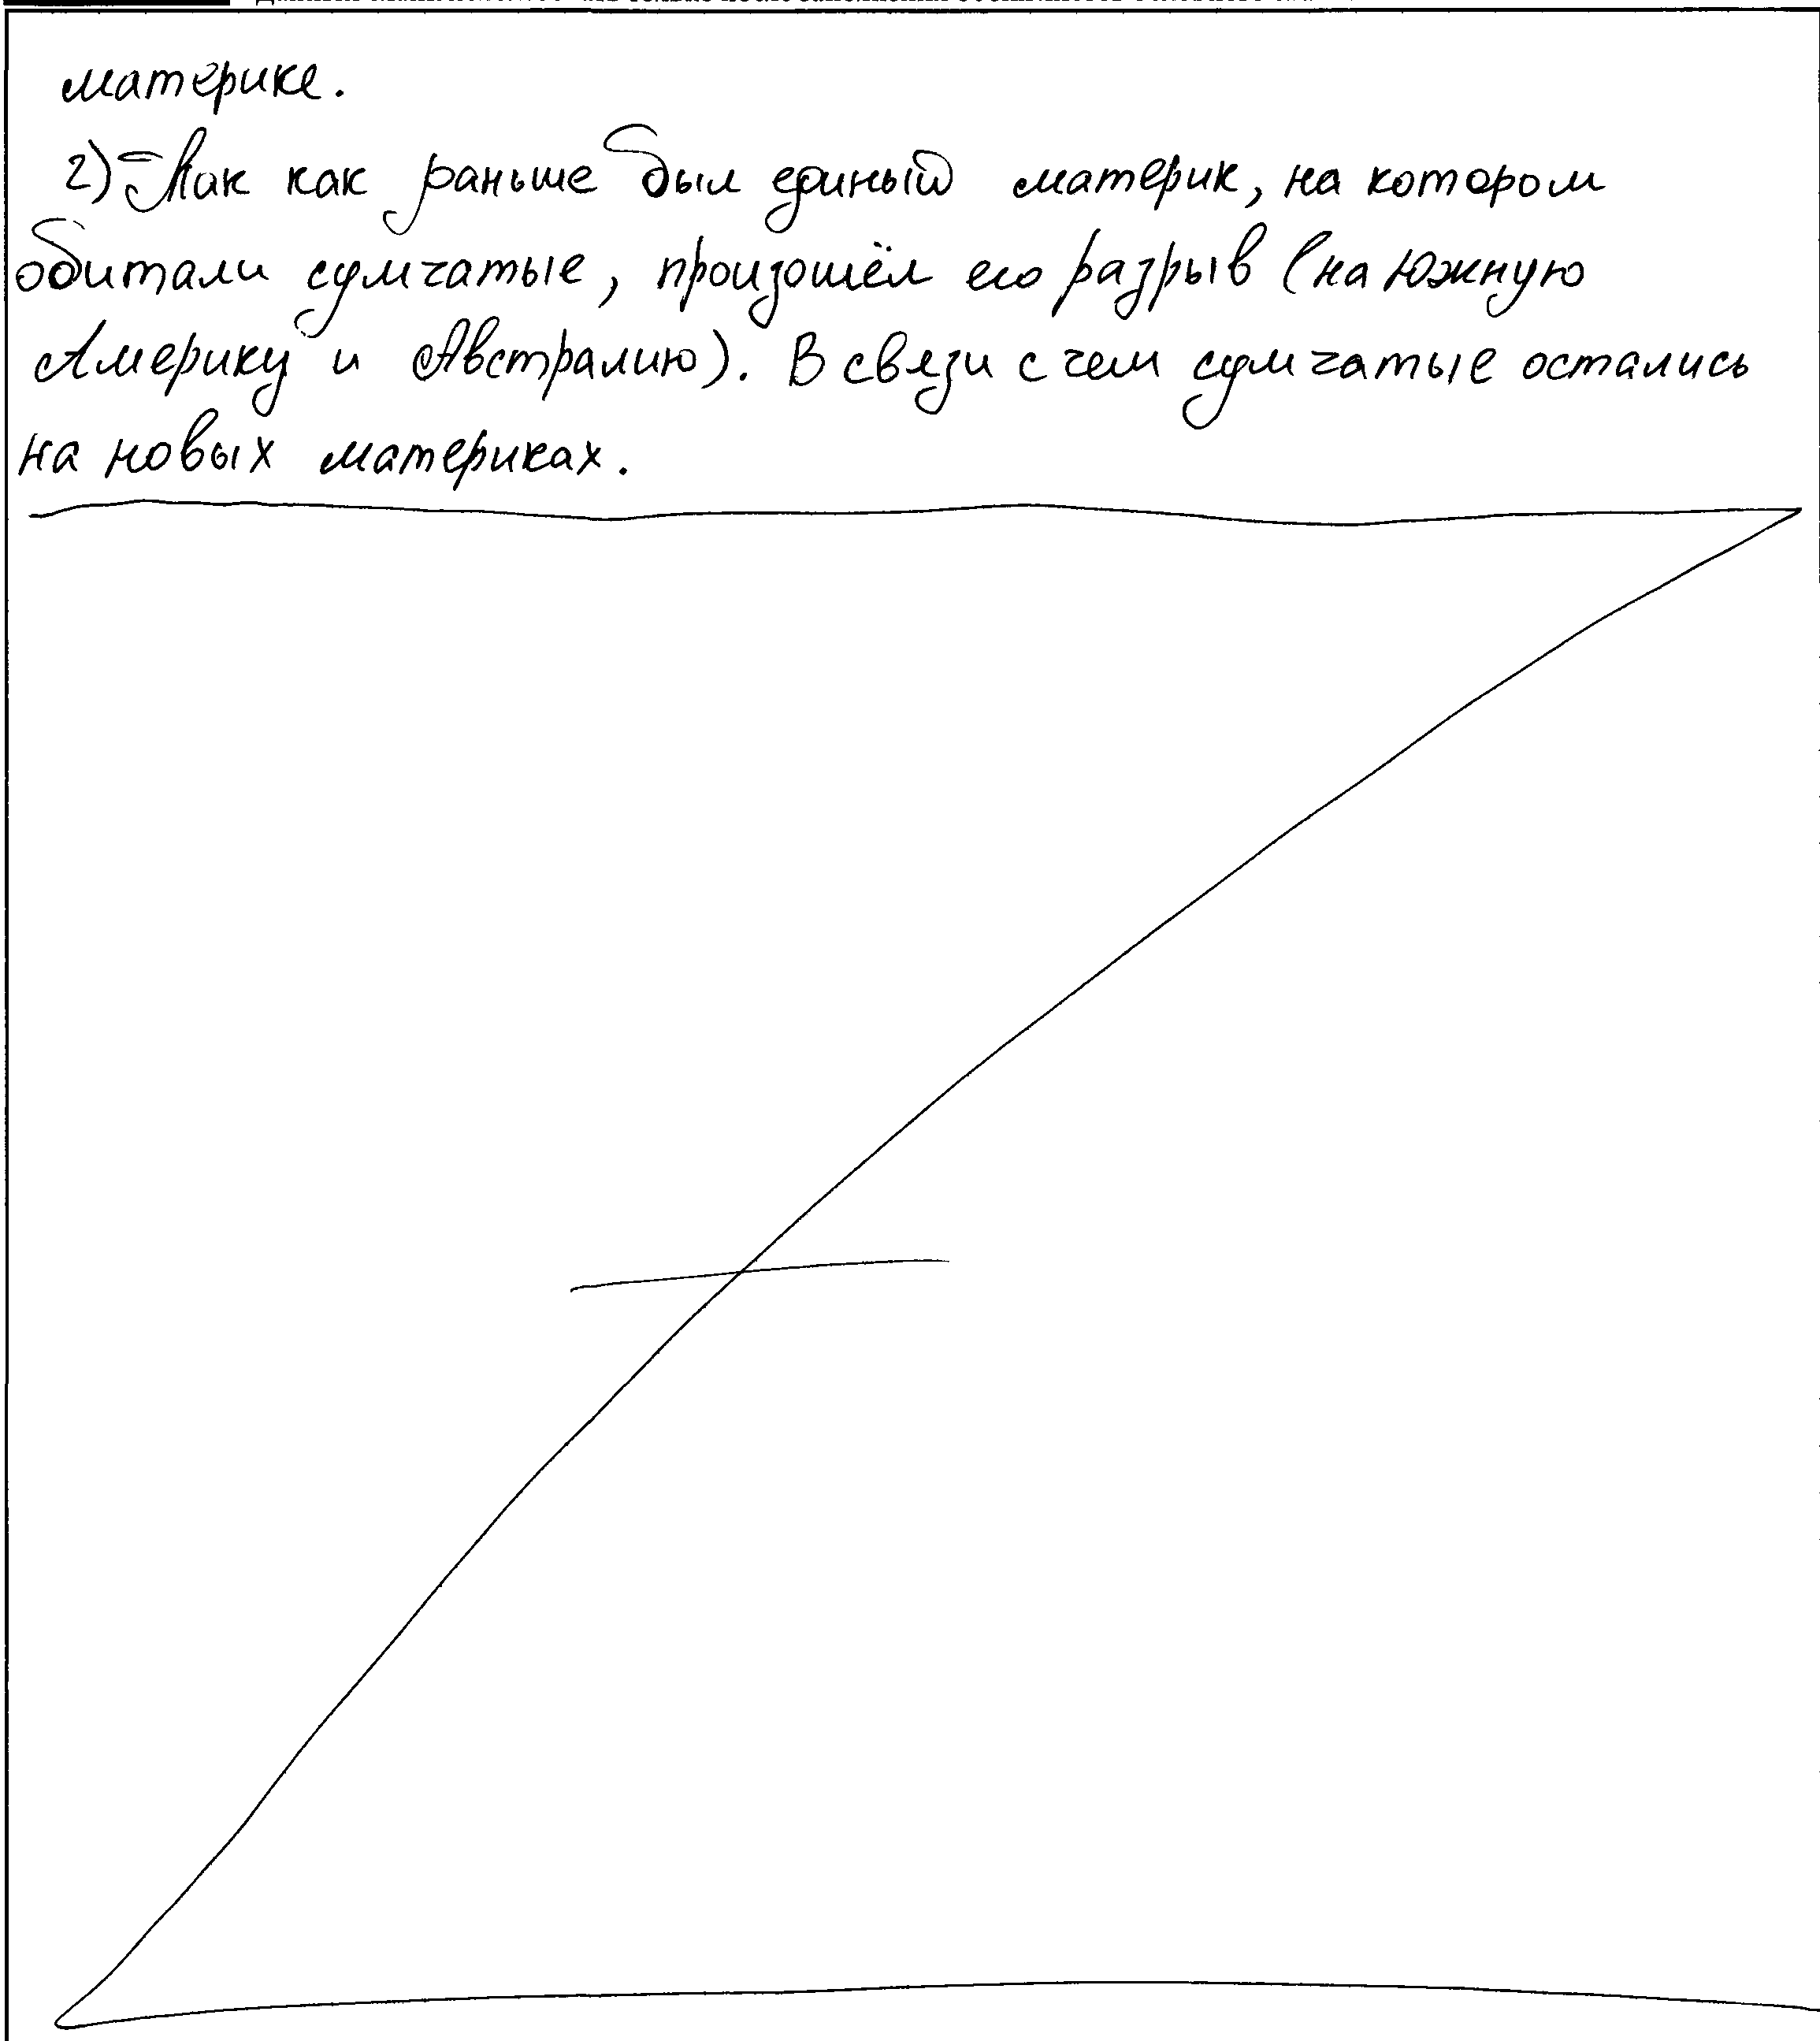 материке.
2) Так как раньше был единый материк, на котором
обитали сумчатые, произошёл его разрыв (на Южную
Америку и Австралию). В связи с чем сумчатые остались
на новых материках.